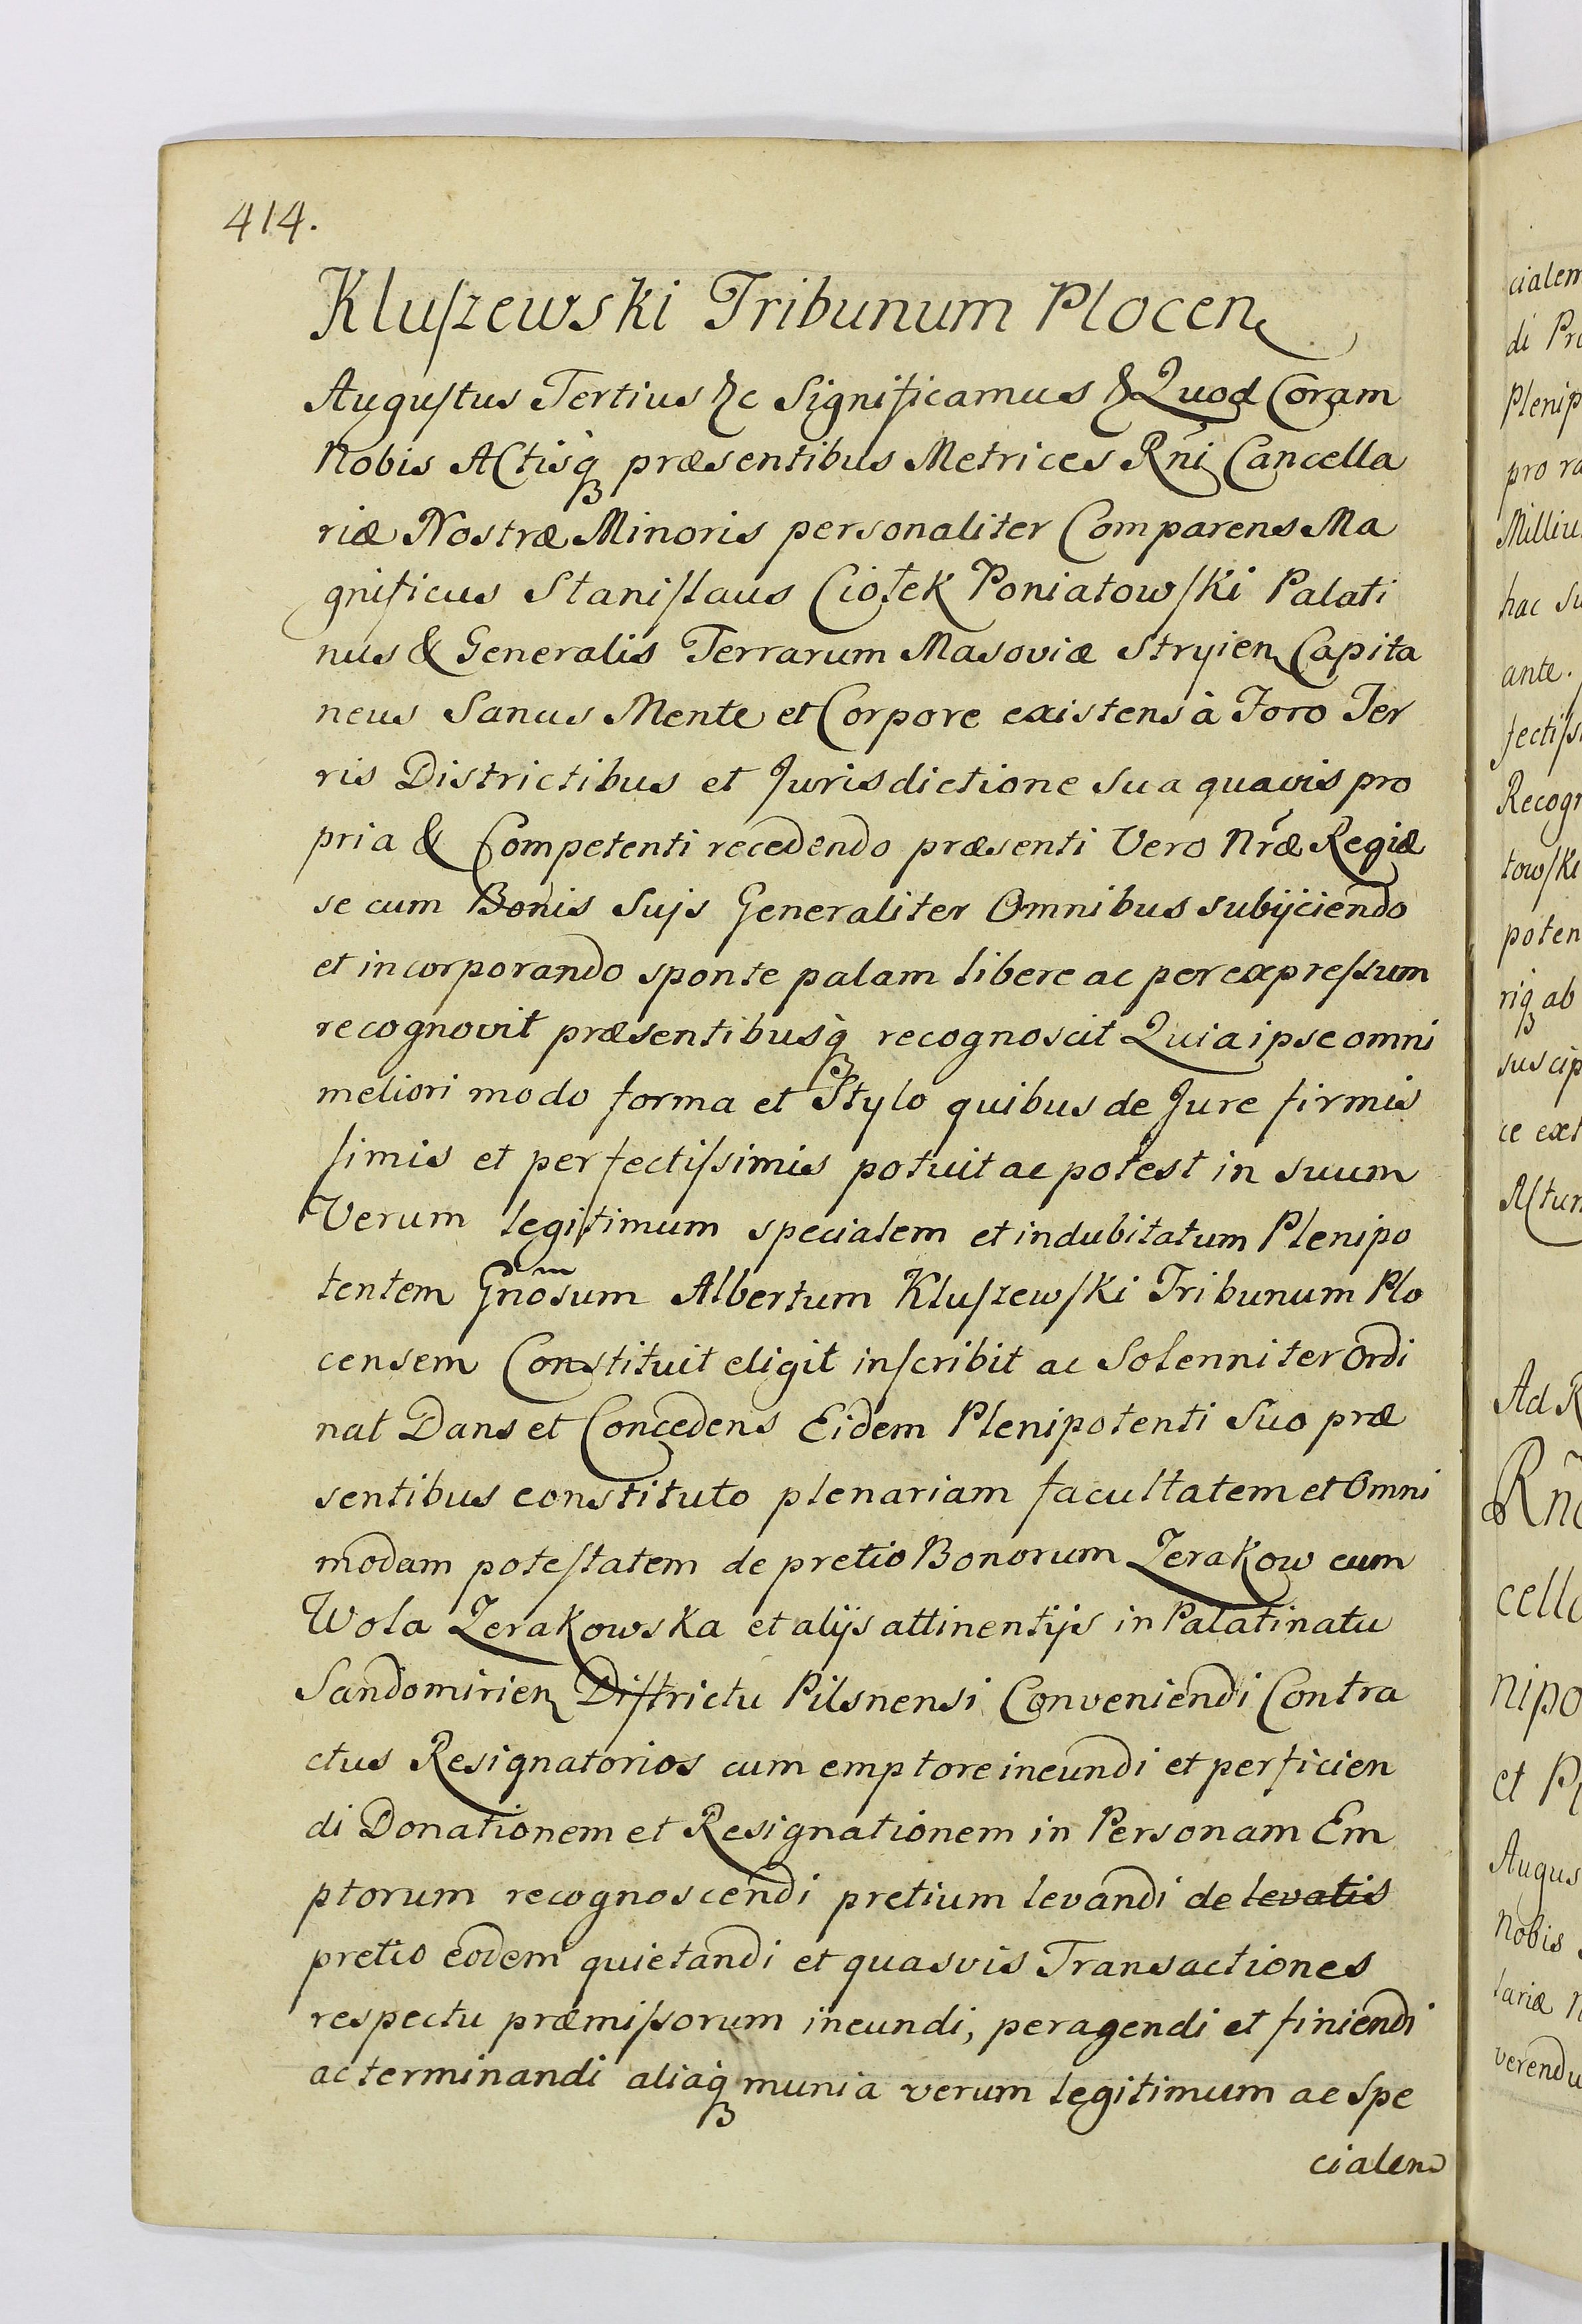 414.
Kluſzewski Tribunum Plocen
Auguſtus Tertius &c Significamus & Quod Coram
Nobis Actisq́ præsentibus Metrices Rñi Cancella
riæ Nostræ Minoris personaliter Comparens Ma
gnificus Staniſlaus Ciołek Poniatowſki Palati
nus & Generalis Terrarum Masoviæ Stryien Capita
neus Sanus Mente et Corpore existens à Foro Ter
ris Districtibus et Jurisdictione sua quavis pro
pria & Competenti recedendo præsenti Vero Nr̃æ Regiæ
se cum Bonis Sujs Generaliter Omnibus subijciendo
et incorporando sponte palam libere ac per expreſsum
recognovit præsentibusq́ recognoscit Quia ipse omni
meliori modo forma et Stylo quibus de Jure firmis
ſimis et perfectiſsimis potuit ac potest in suum
Verum legitimum specialem et indubitatum Plenipo
tentem Gnõsum Albertum Kluſzewſki Tribunum Plo
censem Constituit eligit inſcribit ac Solenniter Ordi
nat Dans et Concedens Eidem Plenipotenti Suo præ
sentibus constituto plenariam facultatem et Omni
modam poteſtatem de pretio Bonorum Zerakow cum
Wola Zerakowska et alijs attinentijs in Palatinatu
Sandomirien Diſtrictu Pilsnensi Conveniendi Contra
ctus Resignatorios cum emptore ineundi et perficien
di Donationem et Resignationem in Personam Em
ptorum recognoscendi pretium levandi de levatis
pretio eodem quietandi et quasvis Transactiones
respectu præmiſsorum ineundi, peragendi et finiendi
ac terminandi aliaq́ munia verum legitimum ac Spe
cialem
cialem
di Pro
Plenip
pro ra
Milliu
hac Su
ante.
fectiſs
Recogn
towſki
poten
riq ab
suscip
ce ext
Actum
Ad R
Rñ
cella
nipo
et P
Augus
Nobis
lariæ N
verendu